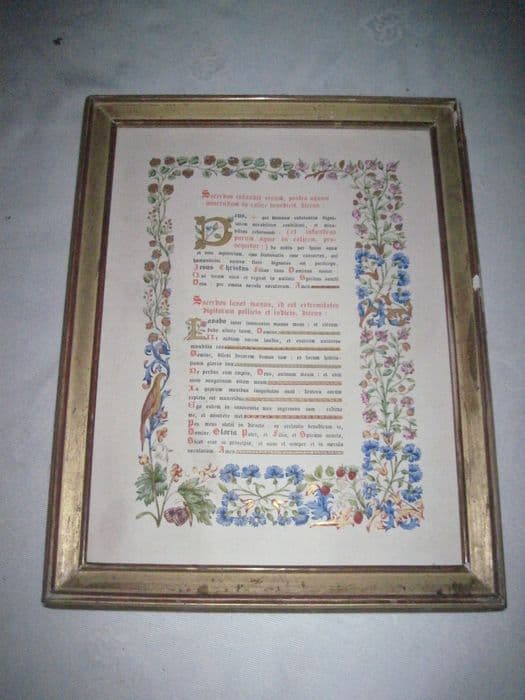 Sacerdos infundit vinum, postea aquam
miscendam in calice benedicit, dicens :
Deus, qui humanae substantiae digni-
tatem mirabiliter condidisti, et mira-
bilius reformasti : (et infundens
parum aquae in calicem, pro-
sequitur :) da nobis per hujus aquae
et vini mysterium, ejus divinitatis esse consortes, qui
humanitatis nostrae fieri dignatus est particeps,
Jesus Christus Filius tuus Dominus noster :
Qui tecum vivit et regnat in unitate Spiritus sancti
Deus, per omnia saecula saeculorum. Amen
Sacerdos lavat manus, id est extremitates
digitorum pollicis et indicis, dicens :
Lavabo inter innocentes manus meas : et circum-
dabo altare tuum, Domine.
Ut audiam vocem laudis, et enarrem universa
mirabilia tua
Domine, dilexi decorem domus tuae : et locum habita-
tionis gloriae tuae
Ne perdas cum impiis, Deus, animam meam : et cum
viris sanguinum vitam meam
In quorum manibus iniquitates sunt : dextera eorum
repleta est muneribus
Ego autem in innocentia mea ingressus sum : redime
me, et miserere mei
Pes meus stetit in directo : in ecclesiis benedicam te,
Domine. Gloria Patri, et Filio, et Spiritui sancto,
Sicut erat in principio, et nunc et semper et in saecula
saeculorum. Amen